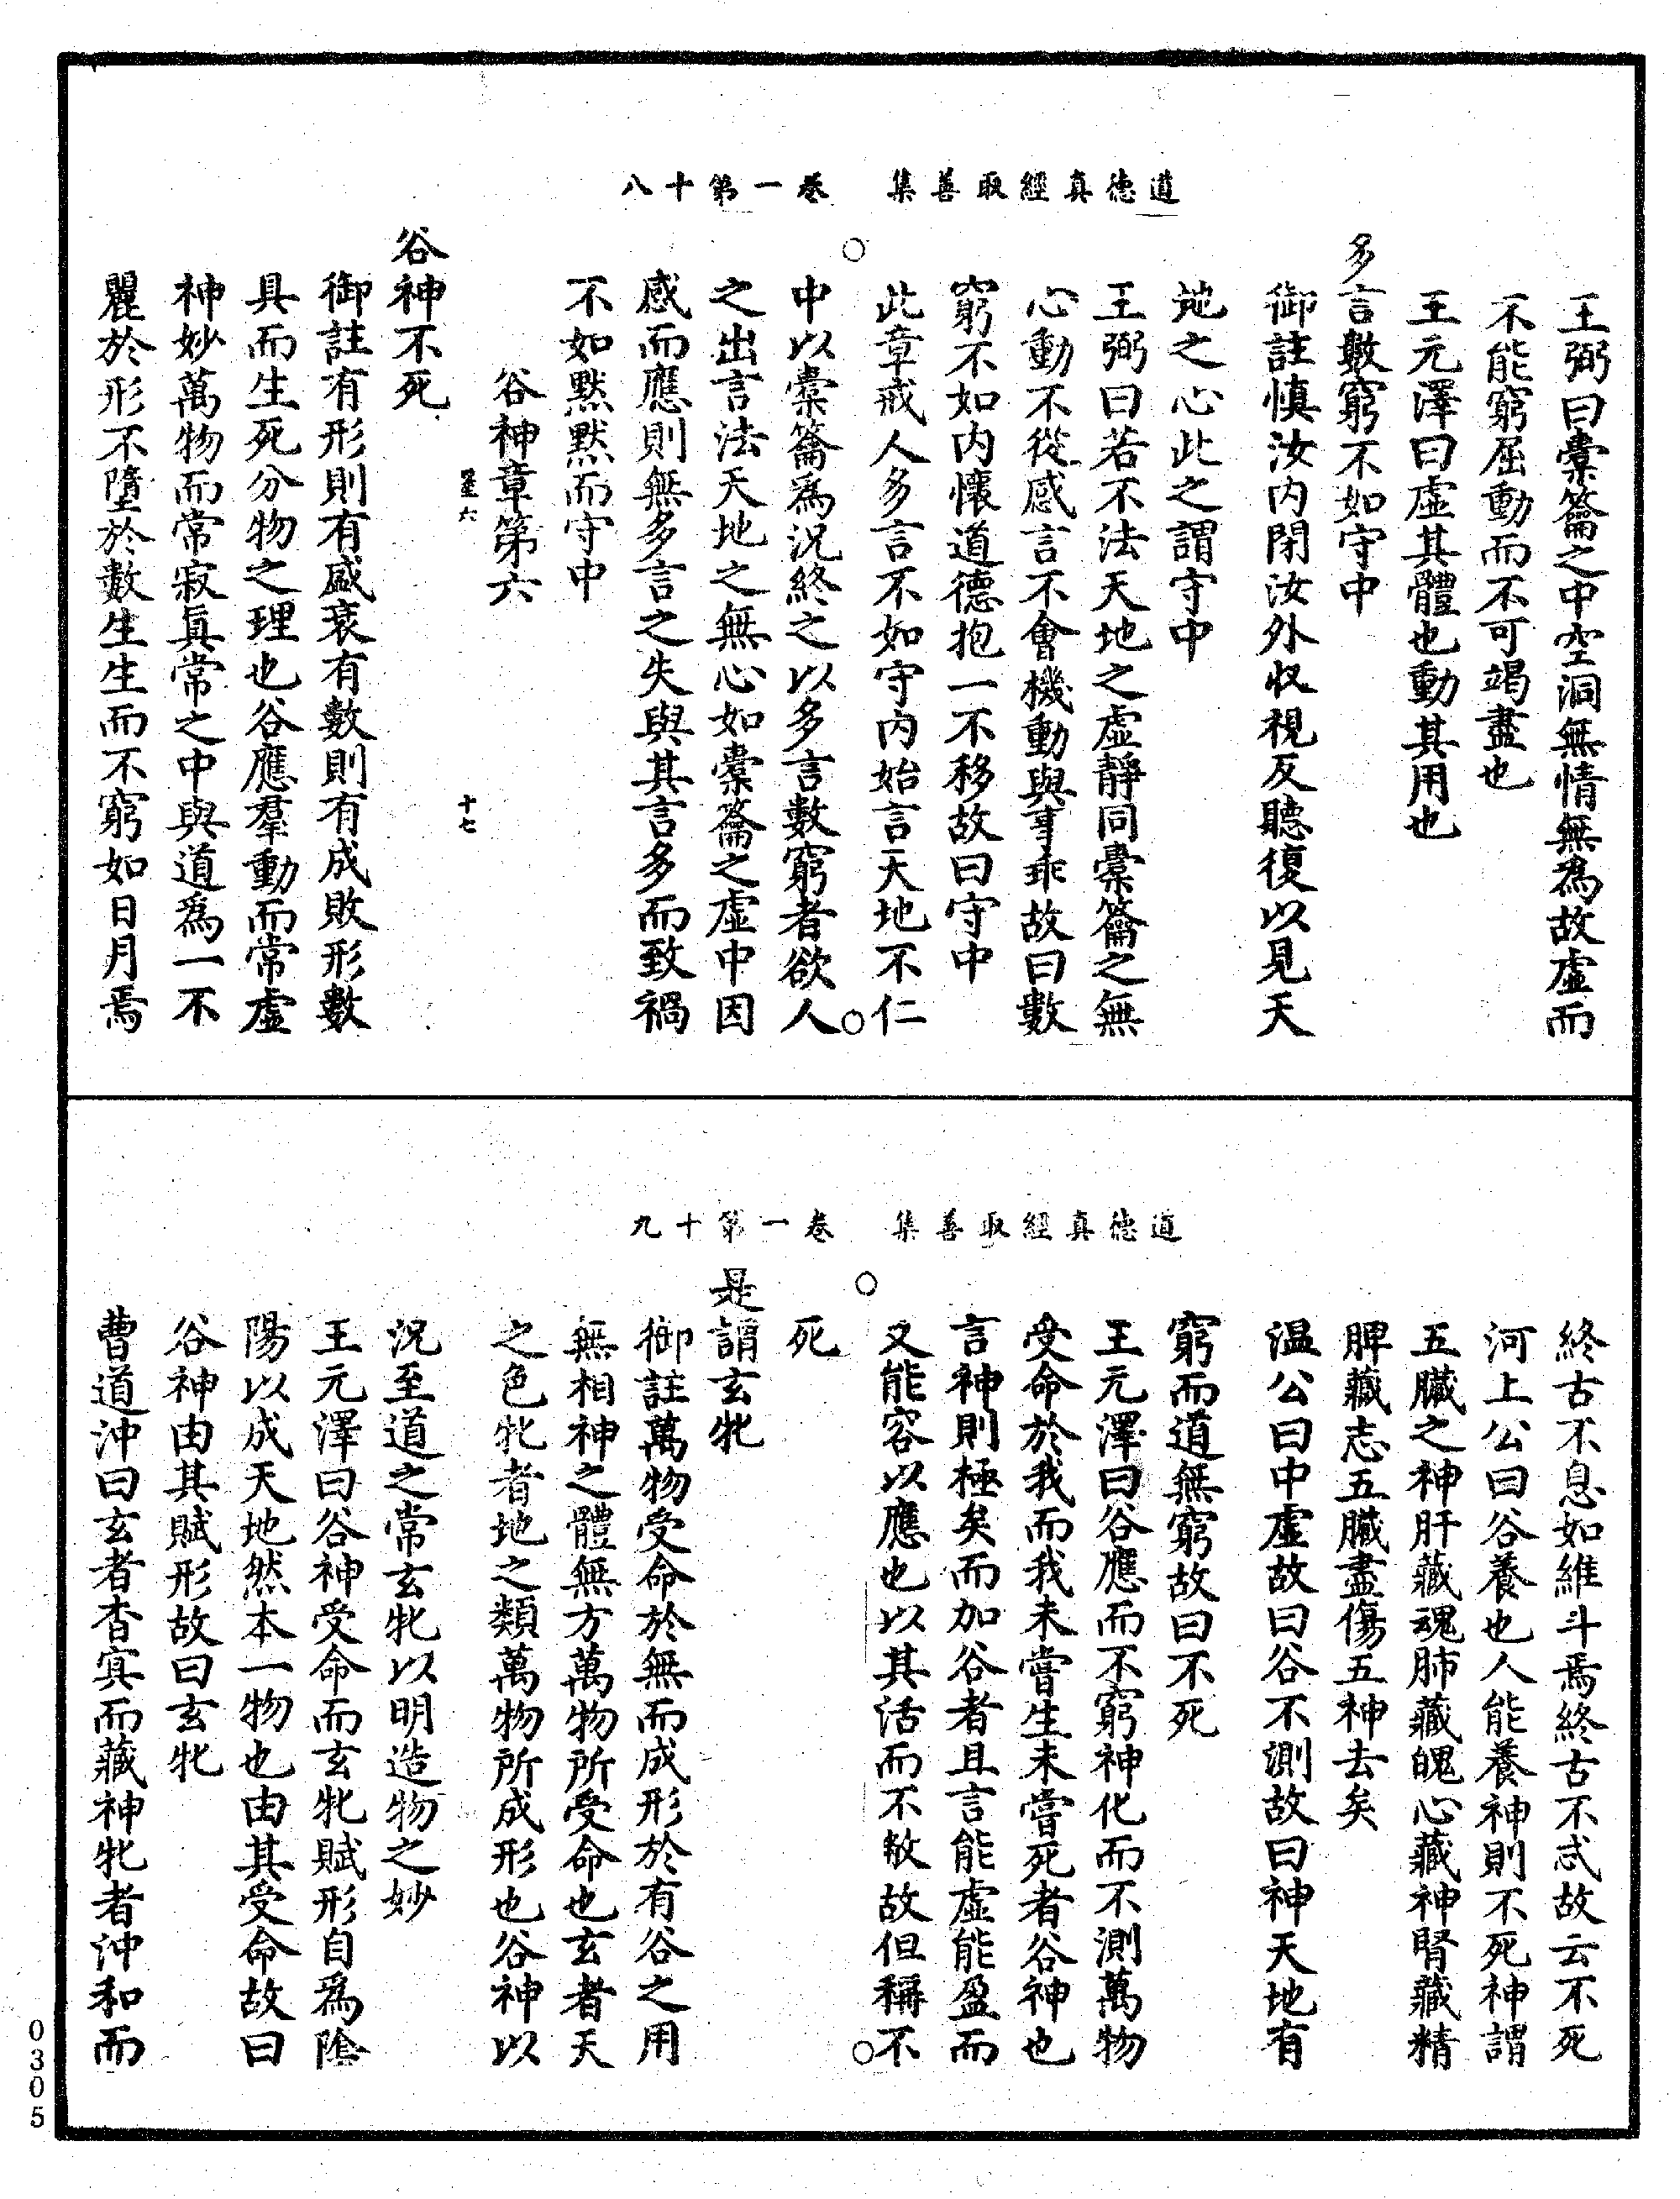 道德真經取善集　卷一第十八
王弼曰橐籥之中空洞無情無為故虛而
不能窮屈動而不可竭盡也
王元澤曰虛其體也動其用也
多言數窮不如守中
御註慎汝內閉汝外收視反聽復以見天
地之心此之謂守中
王弼曰若不法天地之虛靜同橐籥之無
心動不從感言不會機動與事乖故曰數
窮不如內懷道德抱一不移故曰守中
此章戒人多言不如守內始言天地不仁
中以橐籥爲況終之以多言數窮者欲人
之出言法天地之無心如橐籥之虛中因
感而應則無多言之失與其言多而致禍
不如默默而守中
谷神章第六
十七
谷神不死
御註有形則有盛衰有數則有成敗形數
具而生死分物之理也谷應羣動而常虛
神妙萬物而常寂真常之中與道爲一不
麗於形不墮於數生生而不窮如日月焉
道德真經取善集　卷一第十九
終古不息如維斗焉終古不忒故云不死
河上公曰谷養也人能養神則不死神謂
五臟之神肝藏魂肺藏魄心藏神腎藏精
脾藏志五臟盡傷五神去矣
溫公曰中虛故曰谷不測故曰神天地有
窮而道無窮故曰不死
王元澤曰谷應而不窮神化而不測萬物
受命於我而我未嘗生未嘗死者谷神也
言神則極矣而加谷者且言能虛能盈而
又能容以應也以其活而不敝故但稱不
死
是謂玄牝
御註萬物受命於無而成形於有谷之用
無相神之體無方萬物所受命也玄者天
之色牝者地之類萬物所成形也谷神以
況至道之常玄牝以明造物之妙
王元澤曰谷神受命而玄牝賦形自爲陰
陽以成天地然本一物也由其受命故曰
谷神由其賦形故曰玄牝
曹道沖曰玄者杳冥而藏神牝者沖和而
0305